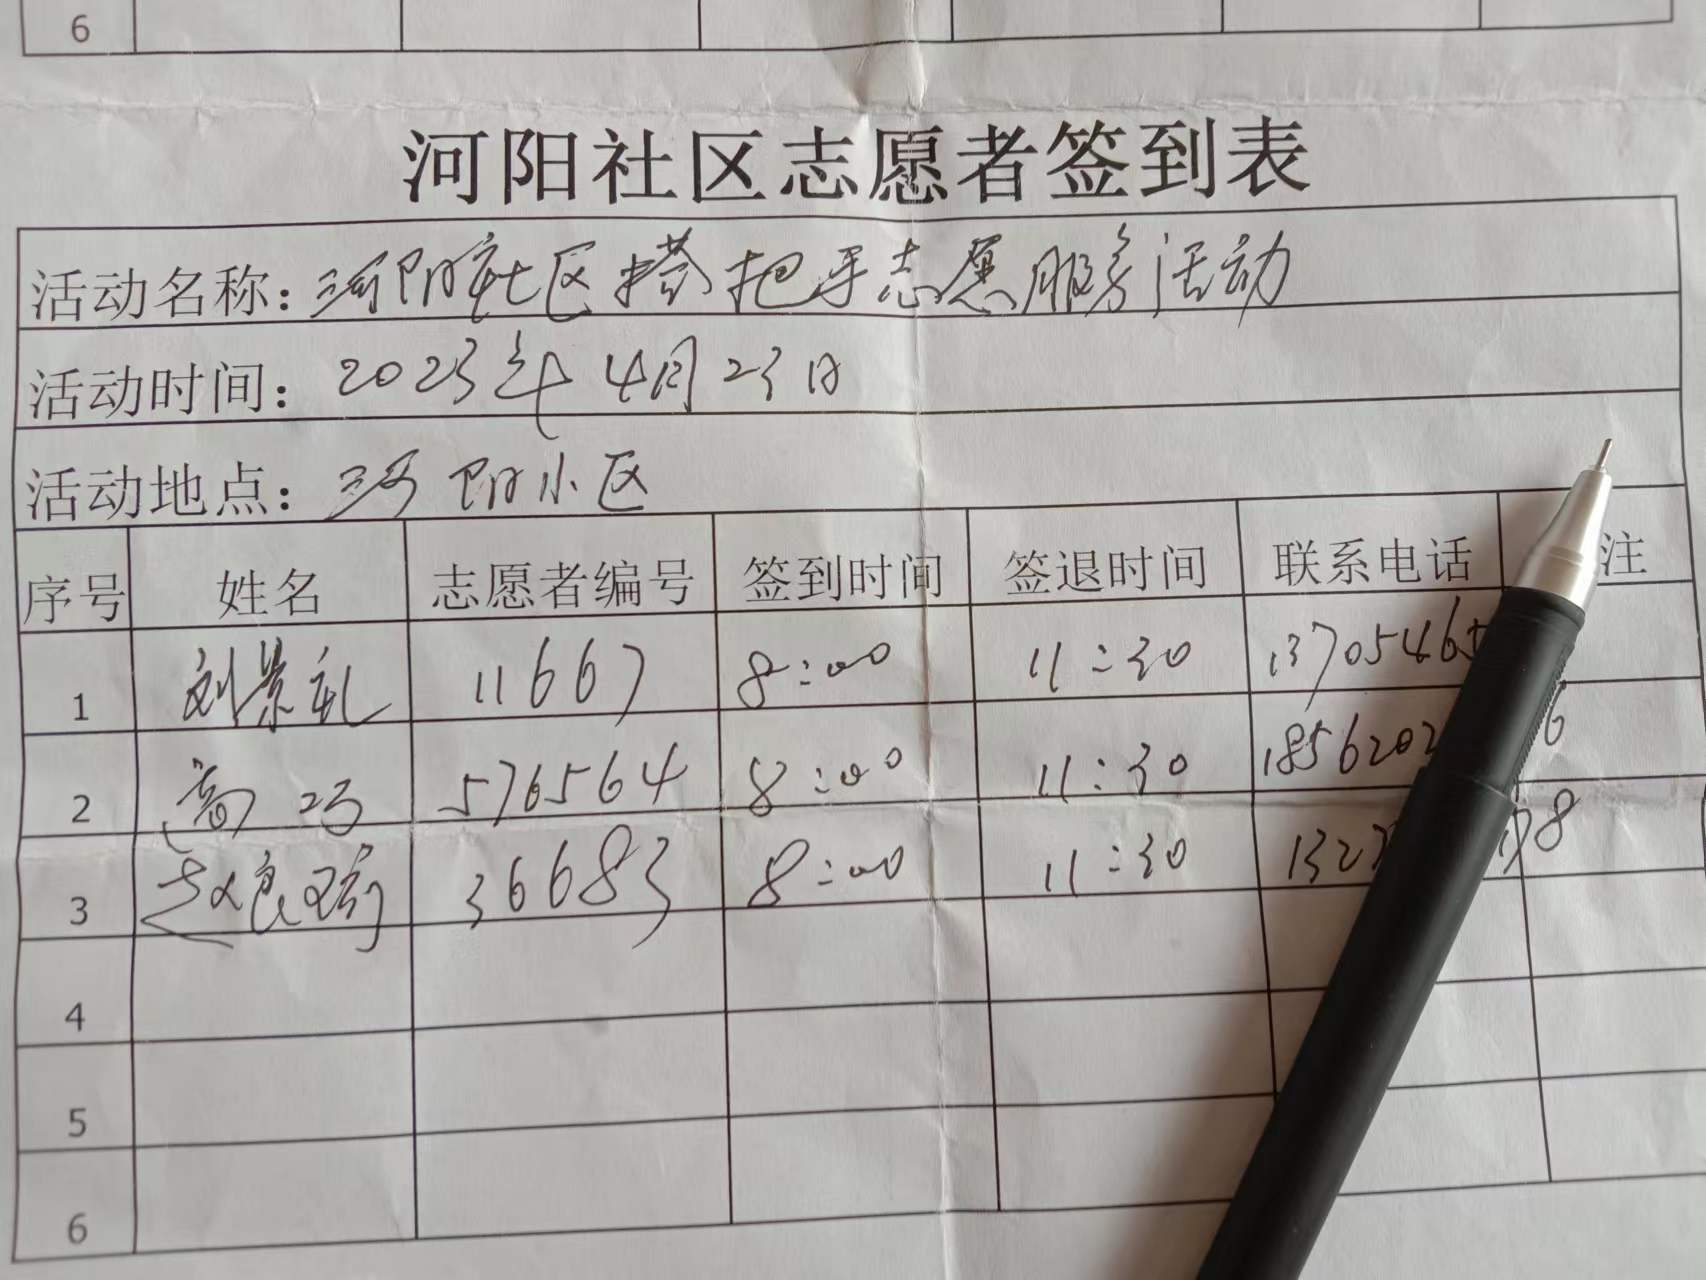 6
河阳社区志愿者签到表
活动名称：河阳社区搭把手志愿服务活动
活动时间：2023年4月23日
活动地点：河阳小区
序号 姓名 志愿者编号 签到时间 签退时间 联系电话 注
1 刘景礼 11667 8:00 11:30 13705465
2 高巧 576564 8:00 11:30 1856202 6
3 36683 8:00 11:30 132 98
4
5
6